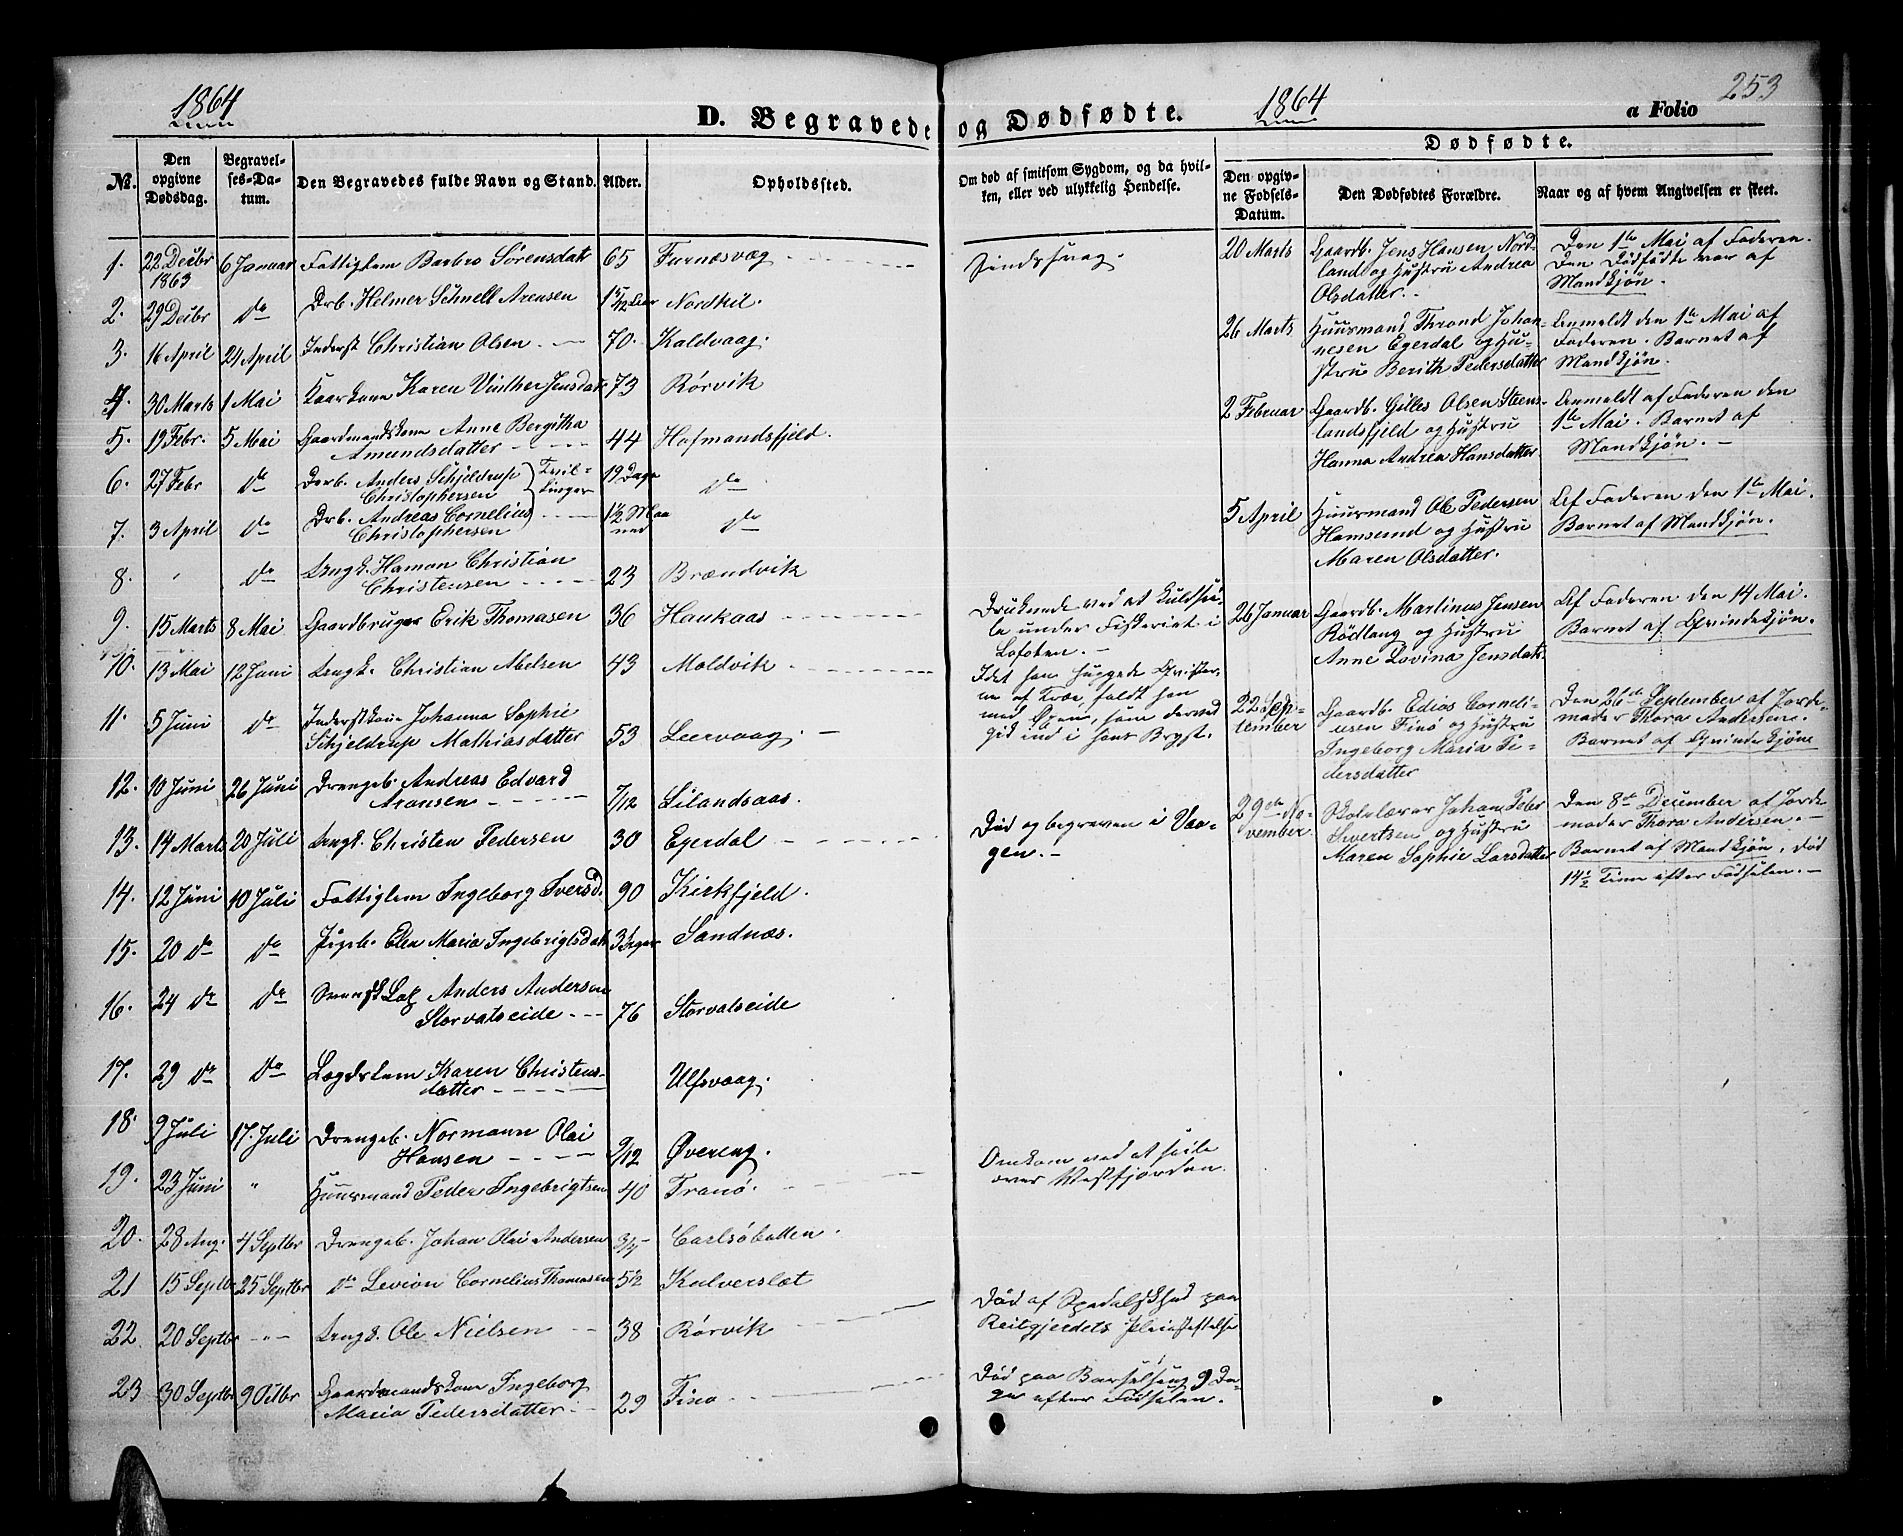 1864
D. Begravede
No.
Den opgivne Dødsdag.
Begravelses-Datum.
Den Begravedes fulde Navn og Stand.
Alder.
Opholdssted.
1. 22 Decbr 1863 6 Januar Fattiglem Barbro Sørensdatr 65 Furnæsvæg
2. 29 Decbr do Drb. Helmer Schnell Arensen Nordkil.
3. 16 April 24 April Inderst Christian Olsen 70. Kaldvaag.
4. 30 Marts 1 Mai Kaarkone Karen Vinther Jensdatr 73 Rørvik
5. 19 Febr. 5 Mai Gaardmandskone Anne Bergitha
Amundsdatter 44 Hofmandsfjeld.
6. 27 Febr do Drb. Anders Schjeldrup
Christophersen Tvillinger 19 Dage do
7. 3 April do Drb. Andreas Cornelius
Christophersen 1½ Maaned do
8. " do Ungk. Hamon Christian
Christensen 23 Brændvik
9. 15 Marts 8 Mai Gaardbruger Erik Thomasen 36 Haukaas
10. 13 Mai 12 Juni Ungk. Christian Nielsen 43 Moldvik
11. 5 Juni do Inderstkone Johanna Sophie
Schjeldrup Mathiasdatter 53 Leervaag.
12. 10 Juni 26 Juni Drengeb. Andreas Edvard
Aronsen 7/12 Lilandsaas.
13. 14 Marts 20 Juli Ungk. Christen Pedersen 30 Egerdal
14. 12 Juni 10 Juli Fattiglem Ingeborg Iversd. 90 Kirkfjeld.
15. 20 do do Pigeb. Elen Maria Ingebrigtsdatr Sandnæs.
16. 24 do do Svensk Lap Anders Andersen
Storvatseide 76 Storvatseide
17. 29 do do Lægdslem Karen Christens-
datter Ulfsvaag.
18. 9 Juli 17. Juli Drengeb. Normann Olai
Hansen 9/12 Øvereng.
19. 23 Juni " Huusmand Peder Ingebrigtsen 40 Tranø.
20. 28 Aug. 4 Septbr Drengeb. Johan Olai Andersen Carlsøbotten.
21 15 Septbr 25 Septbr do Levion Cornelius Thomasen 5½ Kalverslæt
22. 20 Septbr -"- Ungk. Ole Nielsen 38 Rørvik
23 30 Septbr 9 Octbr Gaardmandskone Ingeborg
Maria Pedersdatter 29 Finø
1864
253
og Dødfødte.
a Folio
Om død af smitsom Sygdom, og da hvilken, eller ved ulykkelig Hendelse.
Dødfødte.
Den opgivne Fødsels-Datum.
Den Dødfødtes Forældre.
Naar og af hvem Angivelsen er skeet.
Sindssvag.
Druknede ved at kuldsei-
le under Fiskeriet i
Lofoten.
Idet han huggede Qvister-
ne af Træe, faldt han
med Øxen, som derved
gik ind i hans Bryst.
Død og begraven i Vaa-
gen.
Omkom ved at seile
over Vestfjorden.
Død af Spedalskhed paa
Reitgjerdets Pleiestiftelse
Død paa Barselseng 9 Da-
ge efter Fødselen.
20 Marts Gaardb. Jens Hansen Nord-
land og Hustru Andrea
Olsdatter.
Den 1te Mai af Faderen.
Den Dødfødte var af
Mandkjøn.
26 Marts Huusmand Thrond Johan-
nesen Egerdal og Hu-
stru Berith Pedersdatter
Anmeldt den 1te Mai af
Faderen. Barnet af
Mandkjøn.
2 Februar Gaardb. Gilles Olsen Steens-
landsfjeld og Hustru
Hanna Andrea Hansdatter.
Anmeldt af Faderen den
1te Mai. Barnet af
Mandkjøn.
5 April Huusmand Ole Pedersen
Hamsund og Hustru
Maren Olsdatter.
Af Faderen den 1te Mai.
Barnet af Mandkjøn.
26 Januar Gaardb. Martinus Jensen
Rødtang og Hustru
Anne Lovina Jensdatr.
Af Faderen den 14 Mai.
Barnet af Qvindekjøn.
22 September Gaardb. Edias Corneli-
usen Finø og Hustru
Ingeborg Maria Pe-
dersdatter
Den 26de September af Jorde-
moder Thora Andersen.
Barnet af Qvindekjøn
29de November Skolelærer Johan Peter
Sivertsen og Hustru
Maren Sophie Larsdatter
Den 8de December af Jorde
moder Thora Andersen.
Barnet af Mandkjøn, død
14½ Time efter Fødselen.